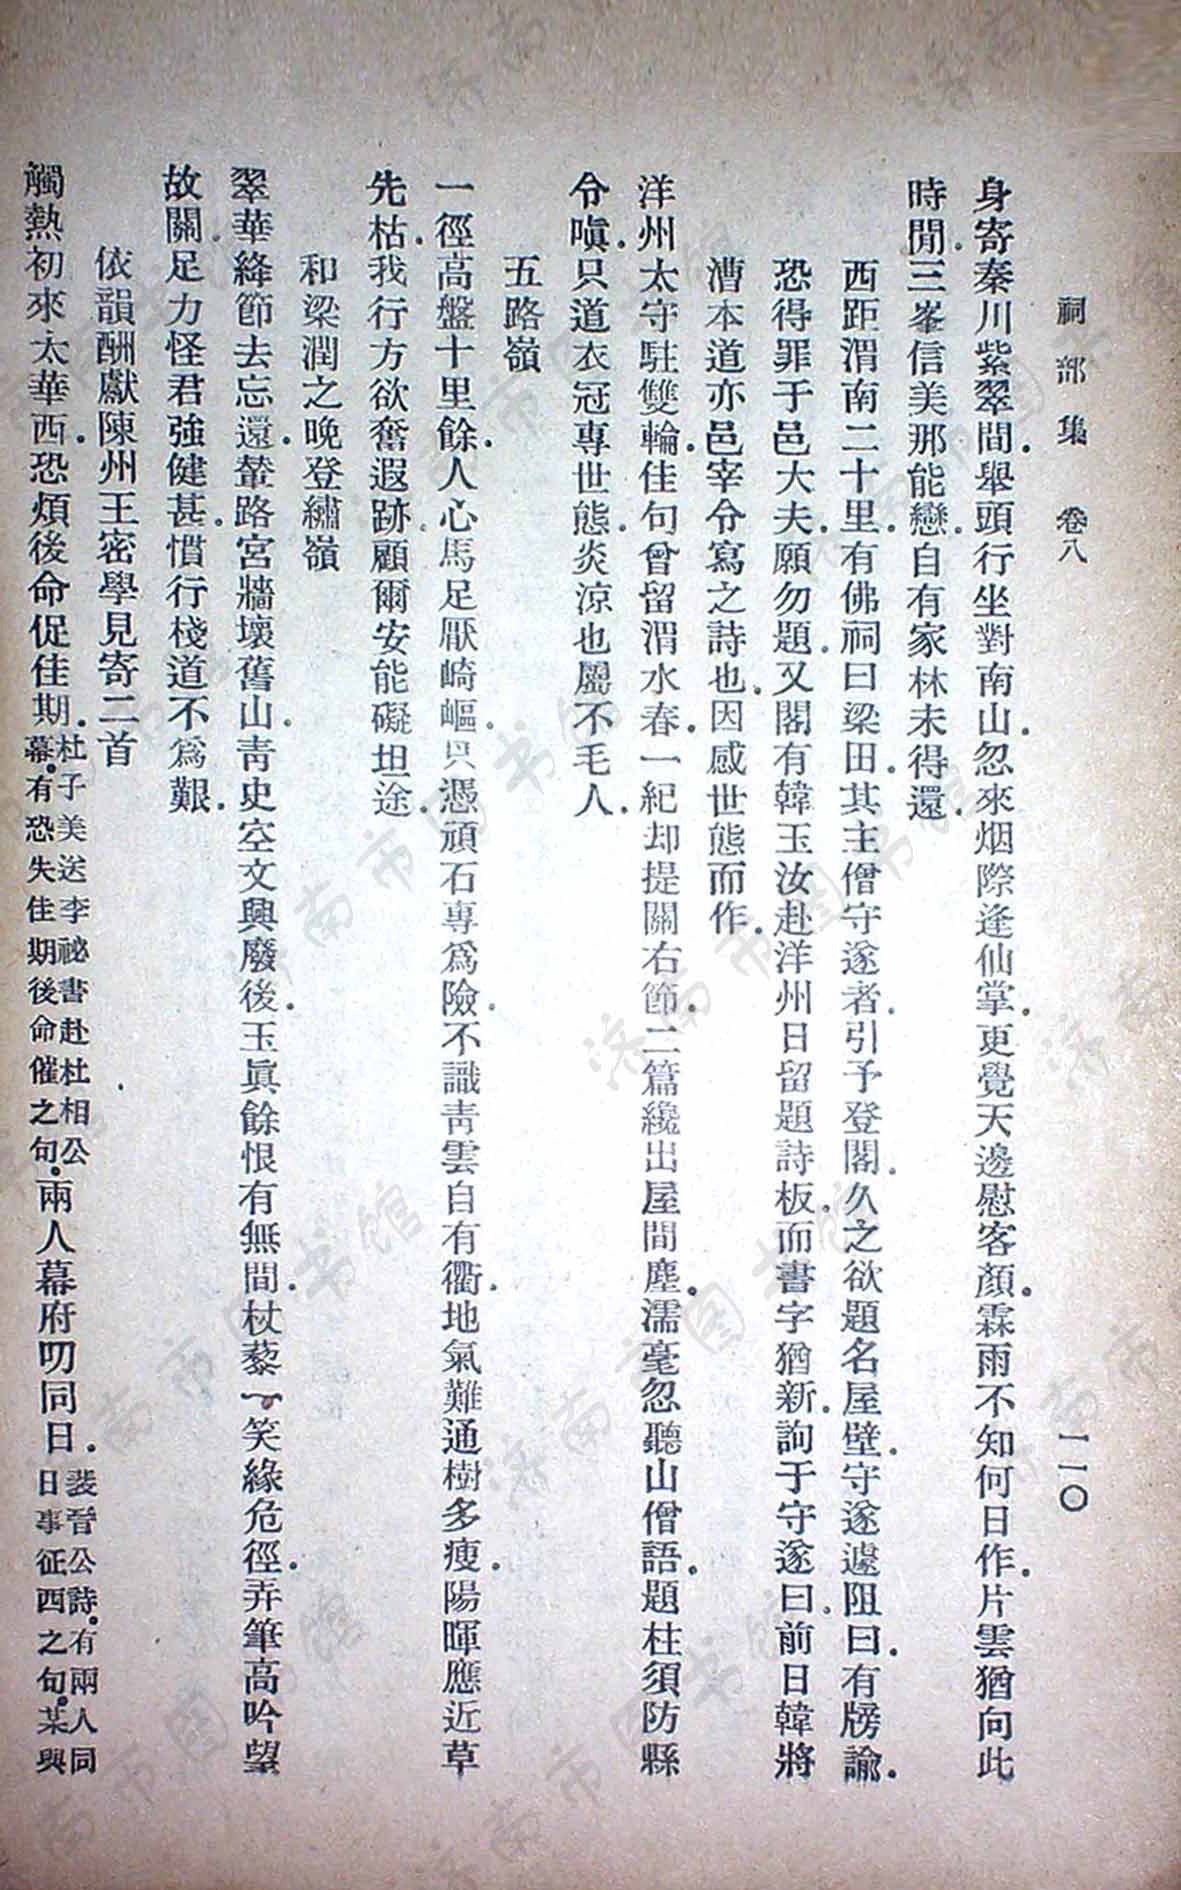 祠部集 卷八 一一〇
身寄秦川紫翠間．舉頭行坐對南山．忽來烟際逢仙掌．更覺天邊慰客顏．霖雨不知何日作．片雲猶向此
時閒．三峯信美那能戀．自有家林未得還．
西距渭南二十里．有佛祠曰梁田．其主僧守遂者．引予登閣．久之欲題名屋壁．守遂遽阻曰．有牓諭．
恐得罪于邑大夫．願勿題．又閣有韓玉汝赴洋州日留題詩板．而書字猶新．詢于守遂曰．前日韓將
漕本道亦邑宰令寫之詩也．因感世態而作．
洋州太守駐雙輪．佳句曾留渭水春．一紀却提關右節．二篇纔出屋間塵．濡毫忽聽山僧語．題柱須防縣
令嗔．只道衣冠專世態．炎涼也屬不毛人．
五路嶺
一徑高盤十里餘．人心馬足厭崎嶇．只憑頑石專爲險．不識靑雲自有衢．地氣難通樹多瘦．陽暉應近草
先枯．我行方欲奮遐跡．顧爾安能礙坦途．
和梁潤之晚登繡嶺
翠華絳節去忘還．輦路宮牆壞舊山．靑史空文興廢後．玉眞餘恨有無間．杖藜一笑緣危徑．弄筆高吟望
故關．足力怪君強健甚．慣行棧道不爲艱．
依韻酬獻陳州王密學見寄二首
觸熱初來太華西．恐煩後命促佳期．杜子美送李祕書赴杜相公幕．有恐失佳期後命催之句．兩人幕府叨同日．裴晉公詩．有兩人同日事征西之句．某與
济南市图书馆